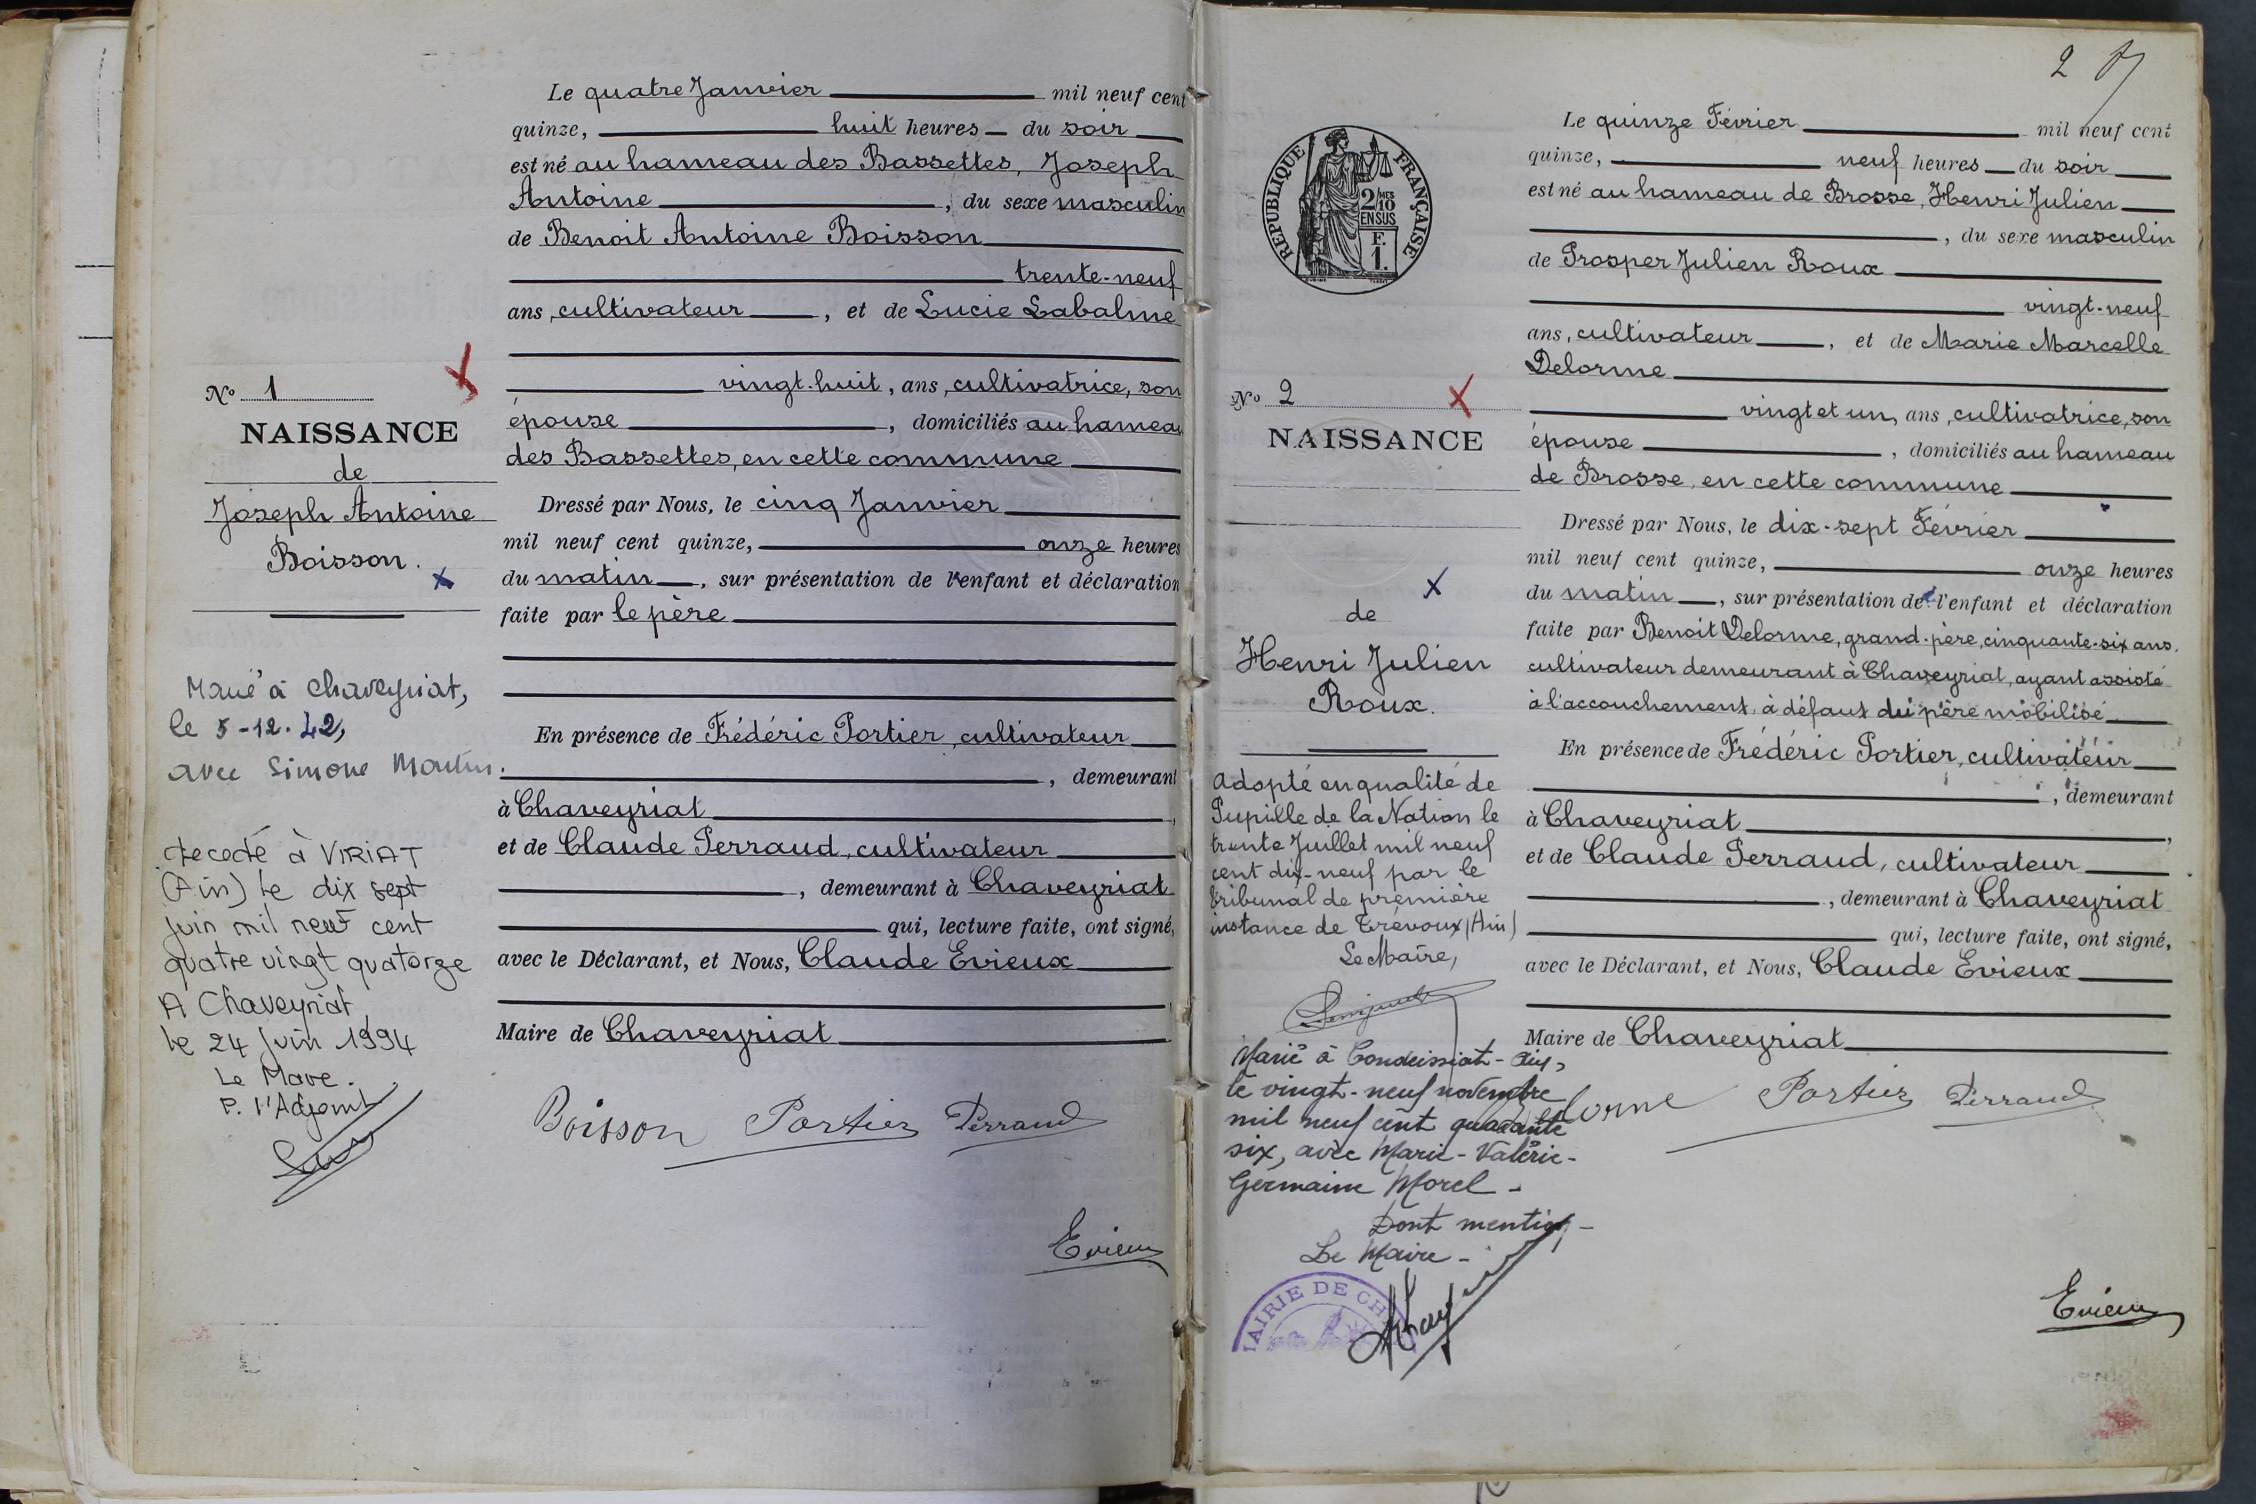 Le quatre Janvier mil neuf cent
quinze, huit heures du soir
est né au hameau des Bassettes, Joseph
Antoine, du sexe masculin
de Benoit Antoine Boisson
trente-neuf
ans, cultivateur, et de Lucie Labalme
vingt-huit, ans, cultivatrice, son
épouse, domiciliés au hameau
des Bassettes, en cette commune
Dressé par Nous, le cinq Janvier
mil neuf cent quinze, onze heures
du matin, sur présentation de l'enfant et déclaration
faite par le père
En présence de Frédéric Portier, cultivateur
, demeurant
à Chaveyriat,
et de Claude Perraud, cultivateur
, demeurant à Chaveyriat
qui, lecture faite, ont signé,
avec le Déclarant, et Nous, Claude Evieux
Maire de Chaveyriat
Boisson Portier Perraud
Evieux
No 1
NAISSANCE
de
Joseph Antoine
Boisson.
Marié à Chaveyriat,
le 5-12.42,
avec Simone Moulin.
décédé à VIRIAT
(Ain) le dix sept
juin mil neuf cent
quatre vingt quatorze
A Chaveyriat
le 24 juin 1994
Le Maire.
P. l'Adjoint
2
REPUBLIQUE FRANÇAISE
2/10 MES
EN SUS
F.
1.
Le quinze Février mil neuf cent
quinze, neuf heures du soir
est né au hameau de Brosse, Henri Julien
, du sexe masculin
de Prosper Julien Roux
vingt-neuf
ans, cultivateur, et de Marie Marcelle
Delorme
vingt et un, ans, cultivatrice, son
épouse, domiciliés au hameau
de Brosse, en cette commune
Dressé par Nous, le dix-sept Février
mil neuf cent quinze, onze heures
du matin, sur présentation de l'enfant et déclaration
faite par Benoit Delorme, grand-père, cinquante-six ans,
cultivateur demeurant à Chaveyriat, ayant assisté
à l'accouchement, à défaut du père mobilisé
En présence de Frédéric Portier, cultivateur
, demeurant
à Chaveyriat,
et de Claude Perraud, cultivateur
, demeurant à Chaveyriat
qui, lecture faite, ont signé,
avec le Déclarant, et Nous, Claude Evieux
Maire de Chaveyriat
Delorme Portier Perraud
Evieux
No 2
NAISSANCE
de
Henri Julien
Roux.
Adopté en qualité de
Pupille de la Nation le
trente Juillet mil neuf
cent dix-neuf par le
tribunal de première
instance de Trévoux (Ain)
Le Maire,
Marié à Condeissiat - Ain,
le vingt-neuf novembre
mil neuf cent quarante
six, avec Marie-Valérie-
Germaine Morel -
Dont mention -
Le Maire -
MAIRIE DE CH